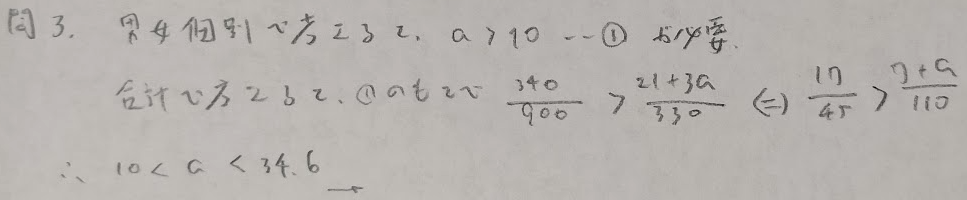 問3. 男女個別で考えると、a>10 --① が必要.
合計で考えると、①のもとで 340/900 > 21+3a/330 ⇔ 17/45 > 7+a/110
∴ 10<a<34.6